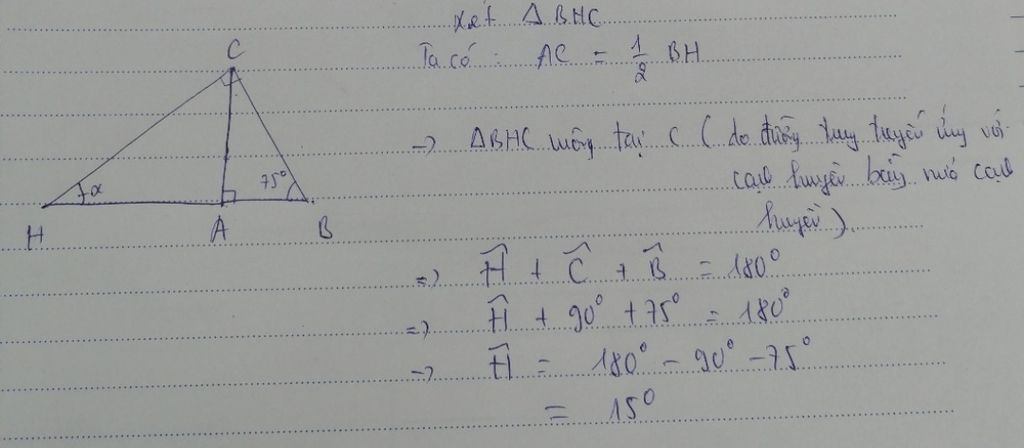 xét ΔBHC
Ta có: AC = 1/2 BH
C
75°
α
H A B
→ ΔBHC vuông tại C (do đường trung tuyến ứng với
cạnh huyền bằng nửa cạnh
huyền).
=> Ĥ + Ĉ + B̂ = 180°
=> Ĥ + 90° + 75° = 180°
→ Ĥ = 180° - 90° - 75°
= 15°